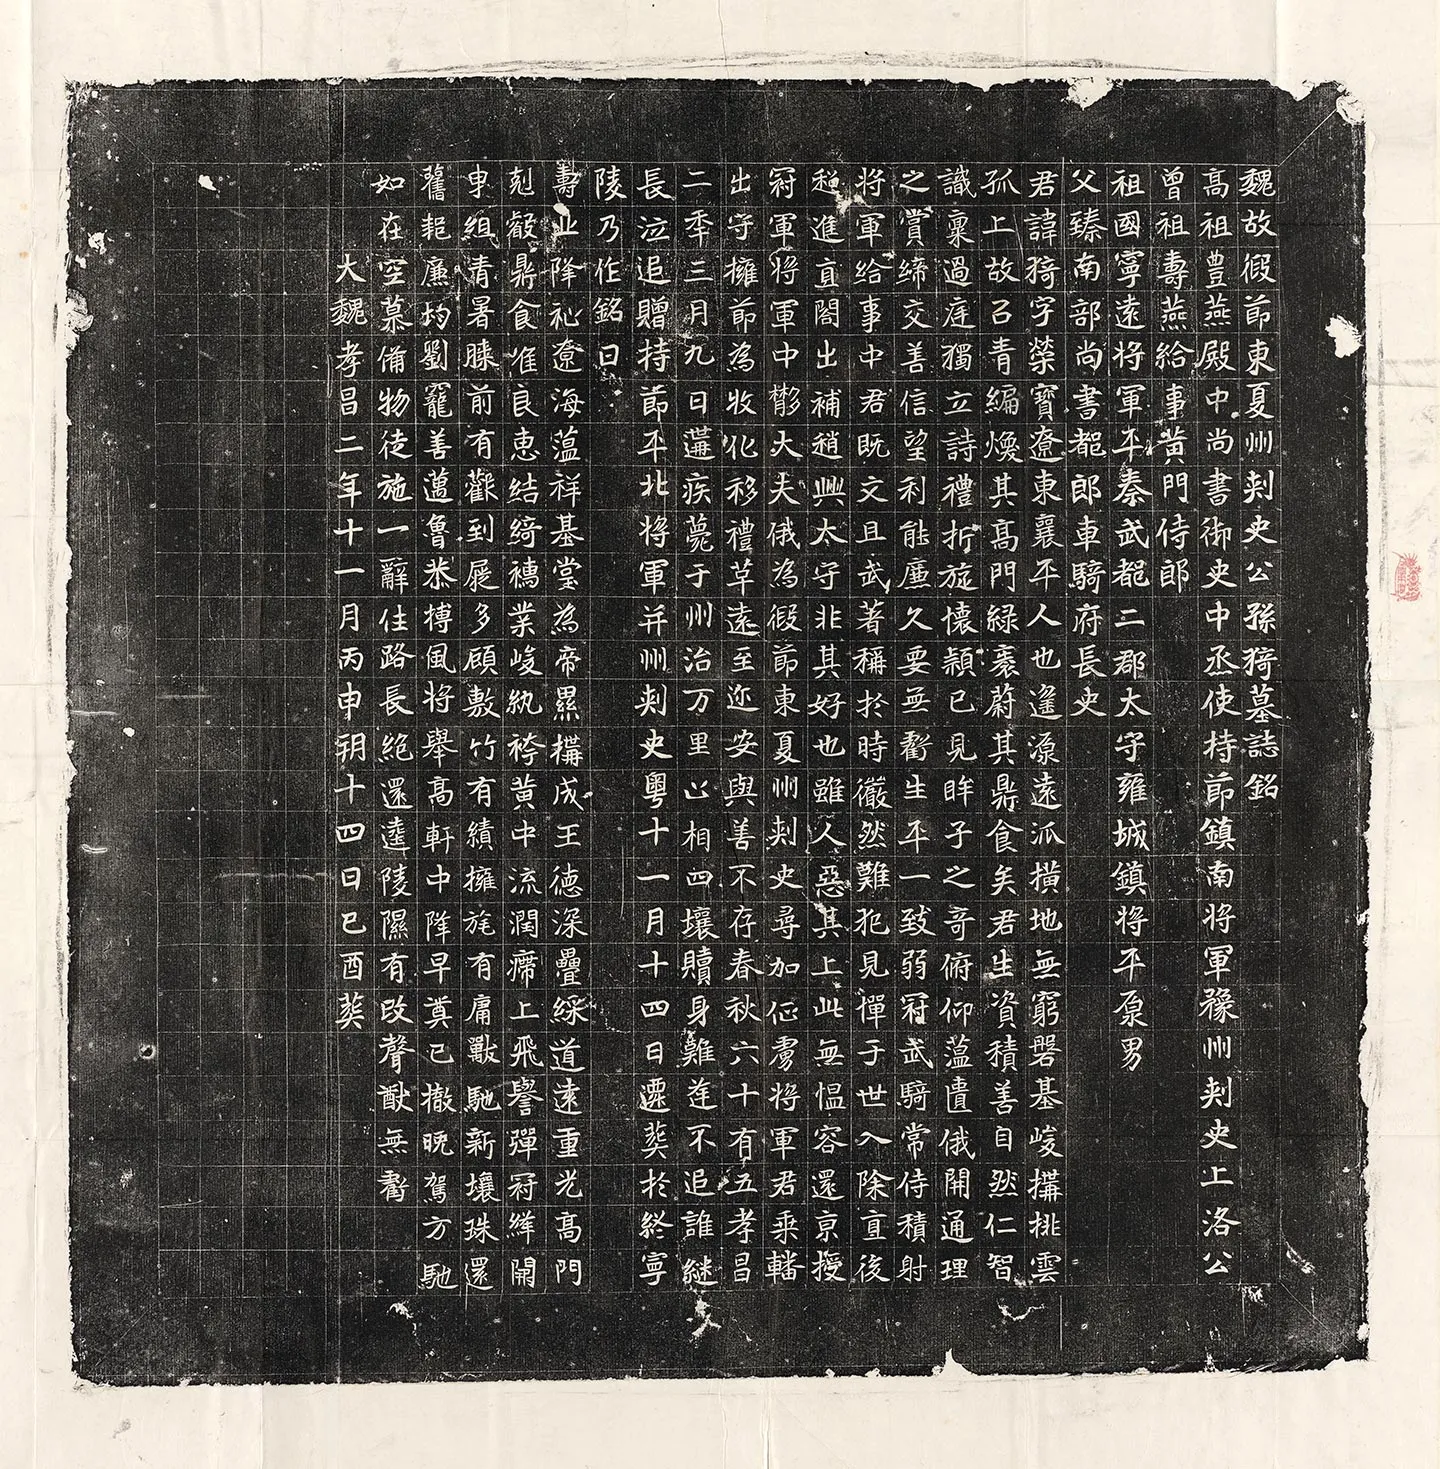 魏故假節東夏州刺史公孫猗墓誌銘
高祖豊燕殿中尚書御史中丞使持節鎮南將軍豫州刺史上洛公
曾祖壽燕給事黃門侍郎
祖國寧遠將軍平秦武都二郡太守雍城鎮將平原男
父臻南部尚書都郎車騎府長史
君諱猗字榮寶遼東襄平人也遙源遠派橫地無窮磐基峻搆桃雲
孤上故已青編煥其高門緑袠蔚其鼎食矣君生資積善自然仁智
識稟過庭獨立詩禮折旋懷穎已見眸子之奇俯仰蕰遺俄開通理
之賞締交善信望利能廉久要無虧生平一致弱冠武騎常侍積射
將軍給事中君既文且武著稱於時儼然難犯見憚于世入除直後
稍進直閤出補趙興太守非其好也雖人惡其上此無慍容還京授
冠軍將軍中散大夫俄為假節東夏州刺史尋加征虜將軍君乘轓
出守擁節為牧化移禮草遠至迩安與善不存春秋六十有五孝昌
二季三月九日遘疾薨于州治万里亡相四壤贖身難莲不追誰継
長泣追贈持節平北將軍并州刺史粵十一月十四日遷葬於終寧
陵乃作銘曰
壽业降祉遼海蕰祥基堂為帝累搆成王德深疊綵道遠重光高門
剋叡鼎食准良恵結綺襦業峻紈袴黃中流潤席上飛譽彈冠縴開
申組清暑朣前有觀到屣多頋敷竹有績擁旄有庸獸馳新壤珠還
舊耙廉均劉寵善邁魯恭搏風將舉高軒中降早奠已撤晩駕方馳
如在空慕備物徒施一辭住路長絕還逵陵隰有改聲猷無虧
大魏孝昌二年十一月丙申朔十四日己酉葬